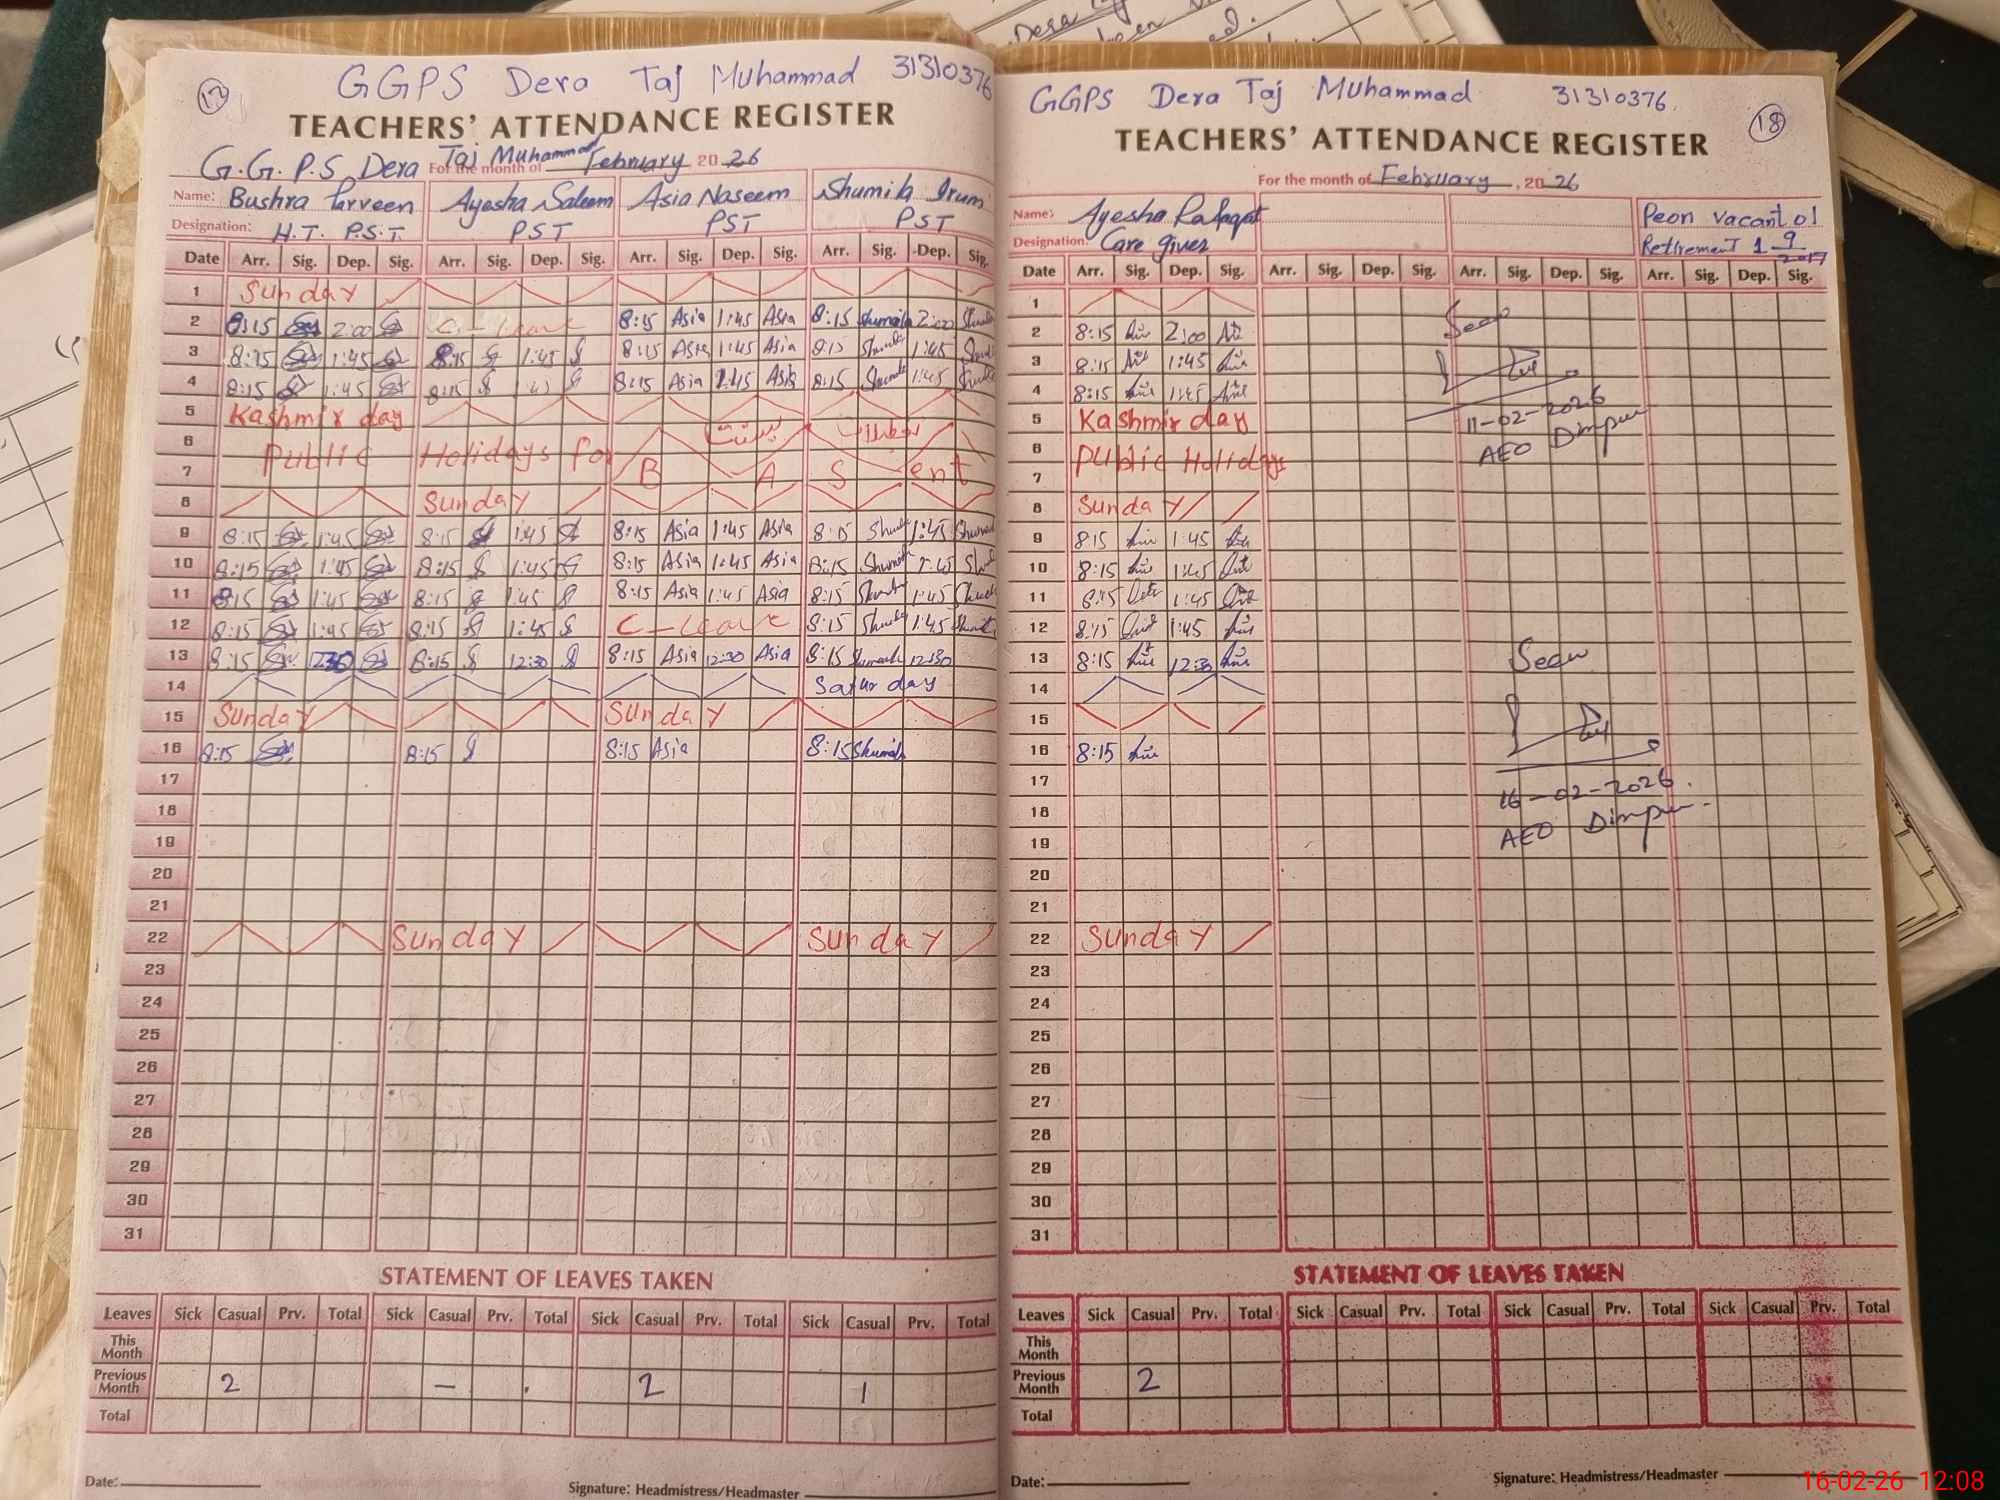 GGPS Dera Taj Muhammad 31310376
17
TEACHERS' ATTENDANCE REGISTER
G.G.P.S Dera Taj Muhammad
For the month of February 2026
Name: Bushra Parveen Ayesha Saleem Asia Naseem Shumila Irum
Designation: H.T. P.S.T. PST PST PST
Date Arr. Sig. Dep. Sig. Arr. Sig. Dep. Sig. Arr. Sig. Dep. Sig. Arr. Sig. Dep. Sig.
1 Sunday
2 8:15 2:00 C-Leave 8:15 Asia 1:45 Asia 8:15 Shumila 2:00
3 8:15 1:45 8:15 1:45 8:15 Asia 1:45 Asia 8:15 1:45
4 8:15 1:45 8:15 1:45 8:15 Asia 1:45 Asia 8:15 1:45
5 Kashmir day
6
7 Public Holidays for B A S ent
8 Sunday
9 8:15 1:45 8:15 1:45 8:15 Asia 1:45 Asia 8:15 1:45
10 8:15 1:45 8:15 1:45 8:15 Asia 1:45 Asia 8:15
11 8:15 1:45 8:15 1:45 8:15 Asia 1:45 Asia 8:15 1:45
12 8:15 1:45 8:15 1:45 C-Leave 8:15 1:45
13 8:15 1230 8:15 12:30 8:15 Asia 12:30 Asia 8:15 12:30
14 Saturday
15 Sunday Sunday
16 8:15 8:15 8:15 Asia 8:15 Shumila
17
18
19
20
21
22 Sunday Sunday
23
24
25
26
27
28
29
30
31
STATEMENT OF LEAVES TAKEN
Leaves Sick Casual Prv. Total Sick Casual Prv. Total Sick Casual Prv. Total Sick Casual Prv. Total
This Month
Previous Month 2 – 2 1
Total
Date:
Signature: Headmistress/Headmaster
GGPS Dera Taj Muhammad 31310376
18
TEACHERS' ATTENDANCE REGISTER
For the month of February, 2026
Name: Ayesha Rafaqat Peon vacant 01
Designation: Care giver Retirement 1 9 2017
Date Arr. Sig. Dep. Sig. Arr. Sig. Dep. Sig. Arr. Sig. Dep. Sig. Arr. Sig. Dep. Sig.
1
2 8:15 2:00 Seen
3 8:15 1:45
4 8:15 1:45
5 Kashmir day 11-02-2026
6 AEO
7 Public Holidays
8 Sunday
9 8:15 1:45
10 8:15 1:45
11 8:15 1:45
12 8:15 1:45
13 8:15 12:30 Seen
14
15
16 8:15
17
18 16-02-2026
19 AEO
20
21
22 Sunday
23
24
25
26
27
28
29
30
31
STATEMENT OF LEAVES TAKEN
Leaves Sick Casual Prv. Total Sick Casual Prv. Total Sick Casual Prv. Total Sick Casual Prv. Total
This Month
Previous Month 2
Total
Date:
Signature: Headmistress/Headmaster
16-02-26 12:08